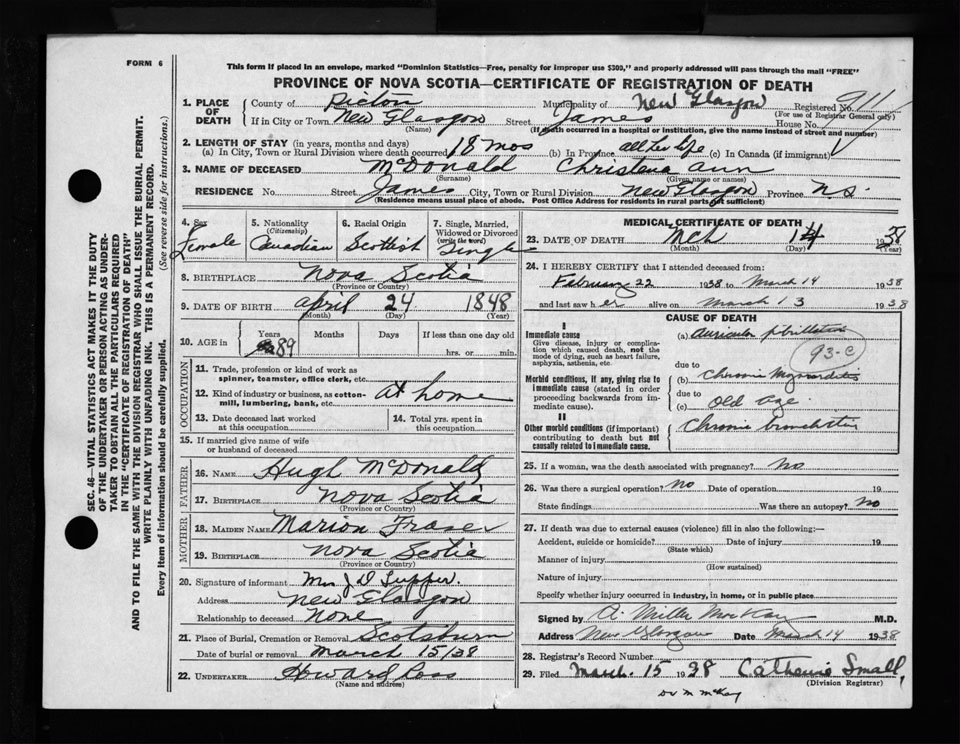 FORM 6
This form if placed in an envelope, marked "Dominion Statistics—Free, penalty for improper use $300," and properly addressed will pass through the mail "FREE"
PROVINCE OF NOVA SCOTIA—CERTIFICATE OF REGISTRATION OF DEATH
1. PLACE OF DEATH County of Pictou Municipality of New Glasgow Registered No. 911
(For use of Registrar General only)
If in City or Town New Glasgow Street James House No.
(Name) (If death occurred in a hospital or institution, give the name instead of street and number)
2. LENGTH OF STAY (in years, months and days)
(a) In City, Town or Rural Division where death occurred 18 mos (b) In Province all her life (c) In Canada (if immigrant)
3. NAME OF DECEASED McDonald Christena Ann
(Surname) (Given name or names)
RESIDENCE No. Street James City, Town or Rural Division New Glasgow Province N.S.
(Residence means usual place of abode. Post Office Address for residents in rural parts not sufficient)
4. Sex Female
5. Nationality (Citizenship) Canadian
6. Racial Origin Scottish
7. Single, Married, Widowed or Divorced (write the word) Single
8. BIRTHPLACE Nova Scotia
(Province or Country)
9. DATE OF BIRTH April 24 1848
(Month) (Day) (Year)
10. AGE in Years Months Days If less than one day old
89 hrs. or min.
OCCUPATION
11. Trade, profession or kind of work as spinner, teamster, office clerk, etc.
12. Kind of industry or business, as cotton-mill, lumbering, bank, etc. At home
13. Date deceased last worked at this occupation
14. Total yrs. spent in this occupation
15. If married give name of wife or husband of deceased
FATHER
16. NAME Hugh McDonald
17. BIRTHPLACE Nova Scotia
(Province or Country)
MOTHER
18. MAIDEN NAME Marion Fraser
19. BIRTHPLACE Nova Scotia
(Province or Country)
20. Signature of informant Mrs J D Tupper.
Address New Glasgow
Relationship to deceased None
21. Place of Burial, Cremation or Removal Scotsburn
Date of burial or removal March 15/38
22. UNDERTAKER Howard Ross
(Name and address)
MEDICAL CERTIFICATE OF DEATH
23. DATE OF DEATH Mch 14 1938
(Month) (Day) (Year)
24. I HEREBY CERTIFY that I attended deceased from:
February 22 1938 to March 14 1938
and last saw her alive on March 13 1938
CAUSE OF DEATH
I
Immediate cause
Give disease, injury or complication which caused death, not the mode of dying, such as heart failure, asphyxia, asthenia, etc.
(a) Auricular fibrillation
93-c
due to
Morbid conditions, if any, giving rise to immediate cause (stated in order proceeding backwards from immediate cause).
(b) Chronic Myocarditis
due to
(c) Old age
II
Other morbid conditions (if important) contributing to death but not causally related to immediate cause.
Chronic bronchitis
25. If a woman, was the death associated with pregnancy? No
26. Was there a surgical operation? No Date of operation 19
State findings Was there an autopsy? No
27. If death was due to external causes (violence) fill in also the following:—
Accident, suicide or homicide? Date of injury 19
(State which)
Manner of injury
(How sustained)
Nature of injury
Specify whether injury occurred in industry, in home, or in public place
Signed by A. Miller MacKay M.D.
Address New Glasgow Date March 14 1938
28. Registrar's Record Number
29. Filed March 15 1938 Catherine Small
(Division Registrar)
Dr M McKay
SEC. 46—VITAL STATISTICS ACT MAKES IT THE DUTY
OF THE UNDERTAKER OR PERSON ACTING AS UNDER-
TAKER TO OBTAIN ALL THE PARTICULARS REQUIRED
IN THE "CERTIFICATE OF REGISTRATION OF DEATH"
AND TO FILE THE SAME WITH THE DIVISION REGISTRAR WHO SHALL ISSUE THE BURIAL PERMIT.
WRITE PLAINLY WITH UNFADING INK. THIS IS A PERMANENT RECORD.
Every item of information should be carefully supplied. (See reverse side for instructions.)